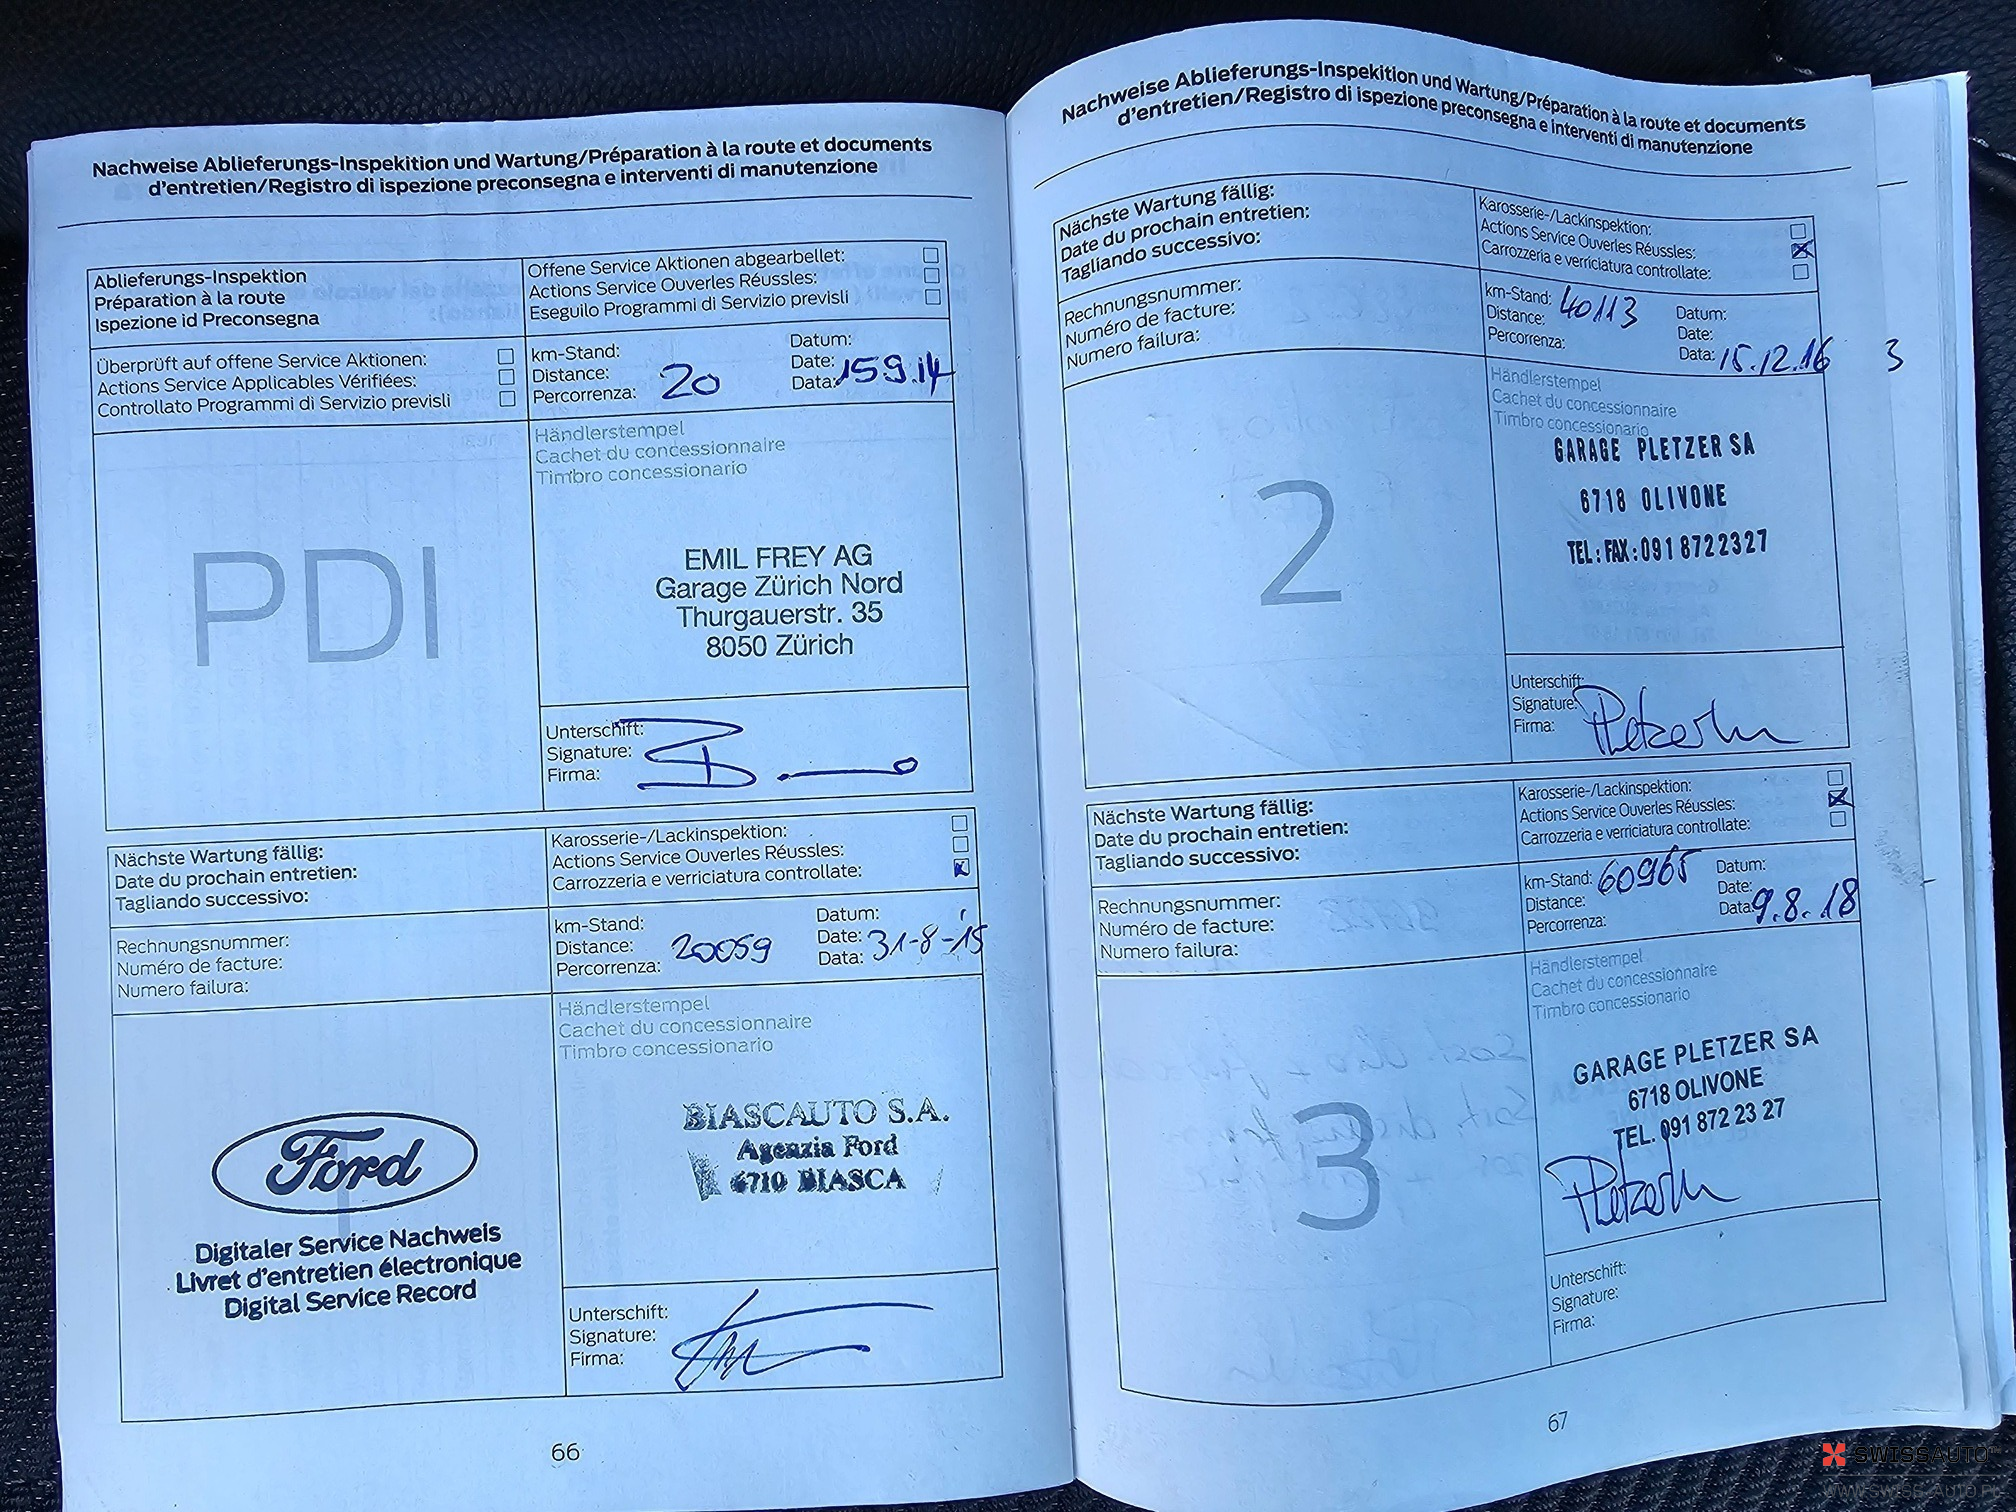 Nachweise Ablieferungs-Inspekition und Wartung/Préparation à la route et documents
d'entretien/Registro di ispezione preconsegna e interventi di manutenzione
Ablieferungs-Inspektion
Préparation à la route
Ispezione id Preconsegna
Offene Service Aktionen abgearbellet:
Actions Service Ouverles Réussles:
Eseguilo Programmi di Servizio previsli
Überprüft auf offene Service Aktionen:
Actions Service Applicables Vérifiées:
Controllato Programmi di Servizio previsli
km-Stand:
Distance:
Percorrenza: 20
Datum:
Date:
Data: 159.14
PDI
Händlerstempel
Cachet du concessionnaire
Timbro concessionario
EMIL FREY AG
Garage Zürich Nord
Thurgauerstr. 35
8050 Zürich
Unterschift:
Signature:
Firma:
Nächste Wartung fällig:
Date du prochain entretien:
Tagliando successivo:
Karosserie-/Lackinspektion:
Actions Service Ouverles Réussles:
Carrozzeria e verriciatura controllate:
Rechnungsnummer:
Numéro de facture:
Numero failura:
km-Stand:
Distance: 20059
Percorrenza:
Datum:
Date: 31-8-15
Data:
Ford
Digitaler Service Nachweis
Livret d'entretien électronique
Digital Service Record
Händlerstempel
Cachet du concessionnaire
Timbro concessionario
BIASCAUTO S.A.
Agenzia Ford
6710 BIASCA
Unterschift:
Signature:
Firma:
66
Nachweise Ablieferungs-Inspekition und Wartung/Préparation à la route et documents
d'entretien/Registro di ispezione preconsegna e interventi di manutenzione
Nächste Wartung fällig:
Date du prochain entretien:
Tagliando successivo:
Karosserie-/Lackinspektion:
Actions Service Ouverles Réussles:
Carrozzeria e verriciatura controllate:
Rechnungsnummer:
Numéro de facture:
Numero failura:
km-Stand: 40113
Distance:
Percorrenza:
Datum:
Date:
Data: 15.12.16
3
2
Händlerstempel
Cachet du concessionnaire
Timbro concessionario
GARAGE PLETZER SA
6718 OLIVONE
TEL: FAX: 091 8722327
Unterschift:
Signature:
Firma:
Nächste Wartung fällig:
Date du prochain entretien:
Tagliando successivo:
Karosserie-/Lackinspektion:
Actions Service Ouverles Réussles:
Carrozzeria e verriciatura controllate:
Rechnungsnummer:
Numéro de facture:
Numero failura:
km-Stand: 60965
Distance:
Percorrenza:
Datum:
Date:
Data: 9.8.18
3
Händlerstempel
Cachet du concessionnaire
Timbro concessionario
GARAGE PLETZER SA
6718 OLIVONE
TEL. 091 872 23 27
Unterschift:
Signature:
Firma:
67
SWISSAUTO
WWW.SWISS-AUTO.PL